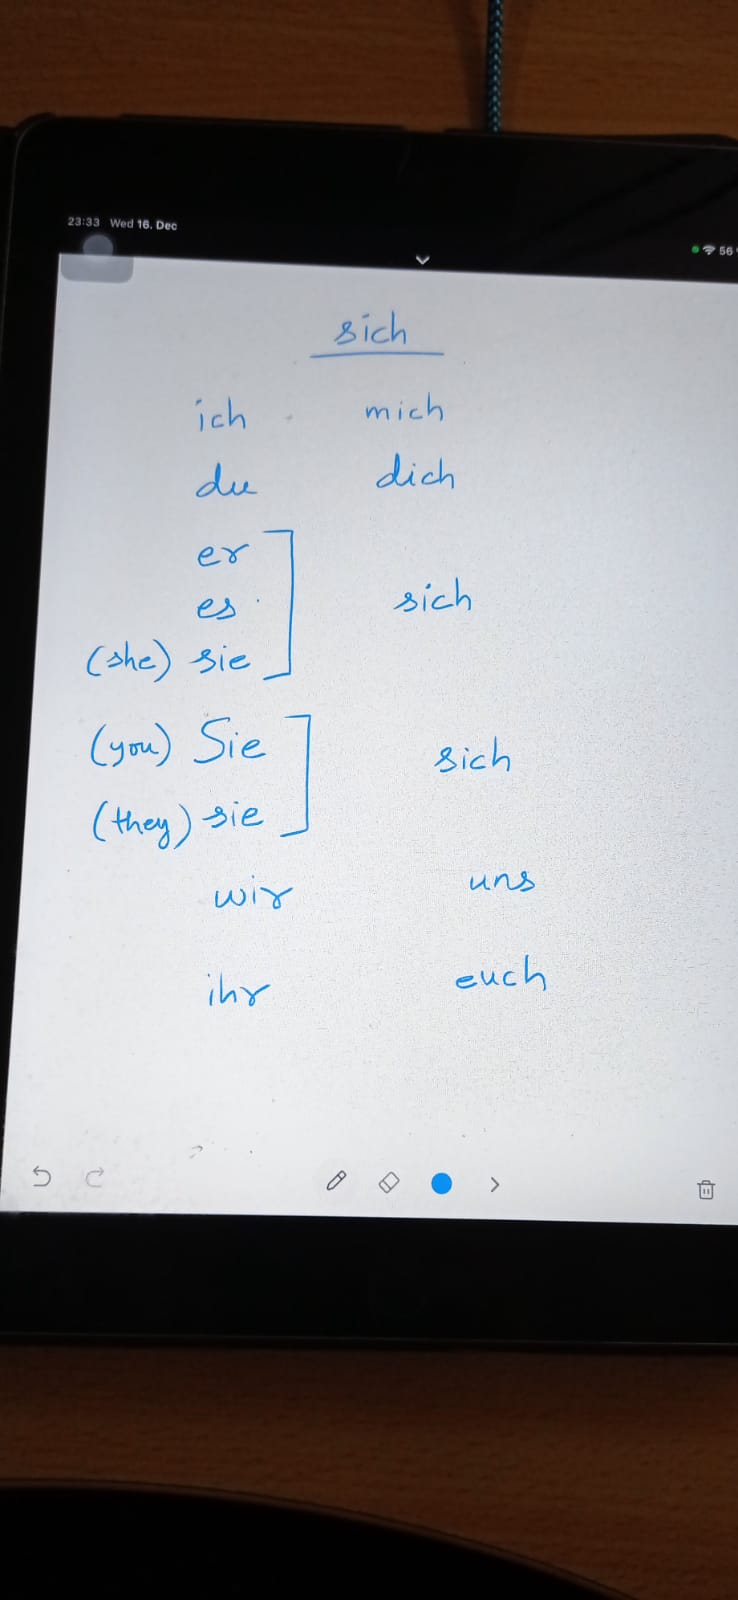 23:33 Wed 16. Dec
56
sich
ich mich
du dich
er
es sich
(she) sie
(you) Sie sich
(they) sie
wir uns
ihr euch